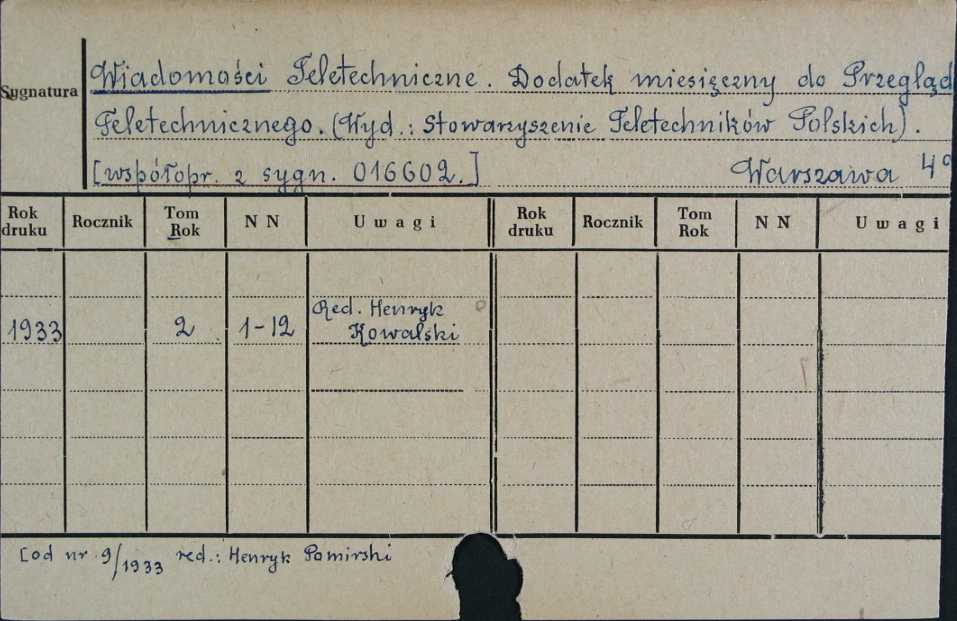 Sygnatura
Wiadomości Teletechniczne. Dodatek miesięczny do Przegląd
Teletechnicznego. (Wyd.: Stowarzyszenie Teletechników Polskich).
[współopr. z sygn. 016602.] Warszawa 4°
Rok druku Rocznik Tom Rok N N Uwagi Rok druku Rocznik Tom Rok N N Uwagi
1933 2 1-12 Red. Henryk
Kowalski
[od nr 9/1933 red.: Henryk Pomirski